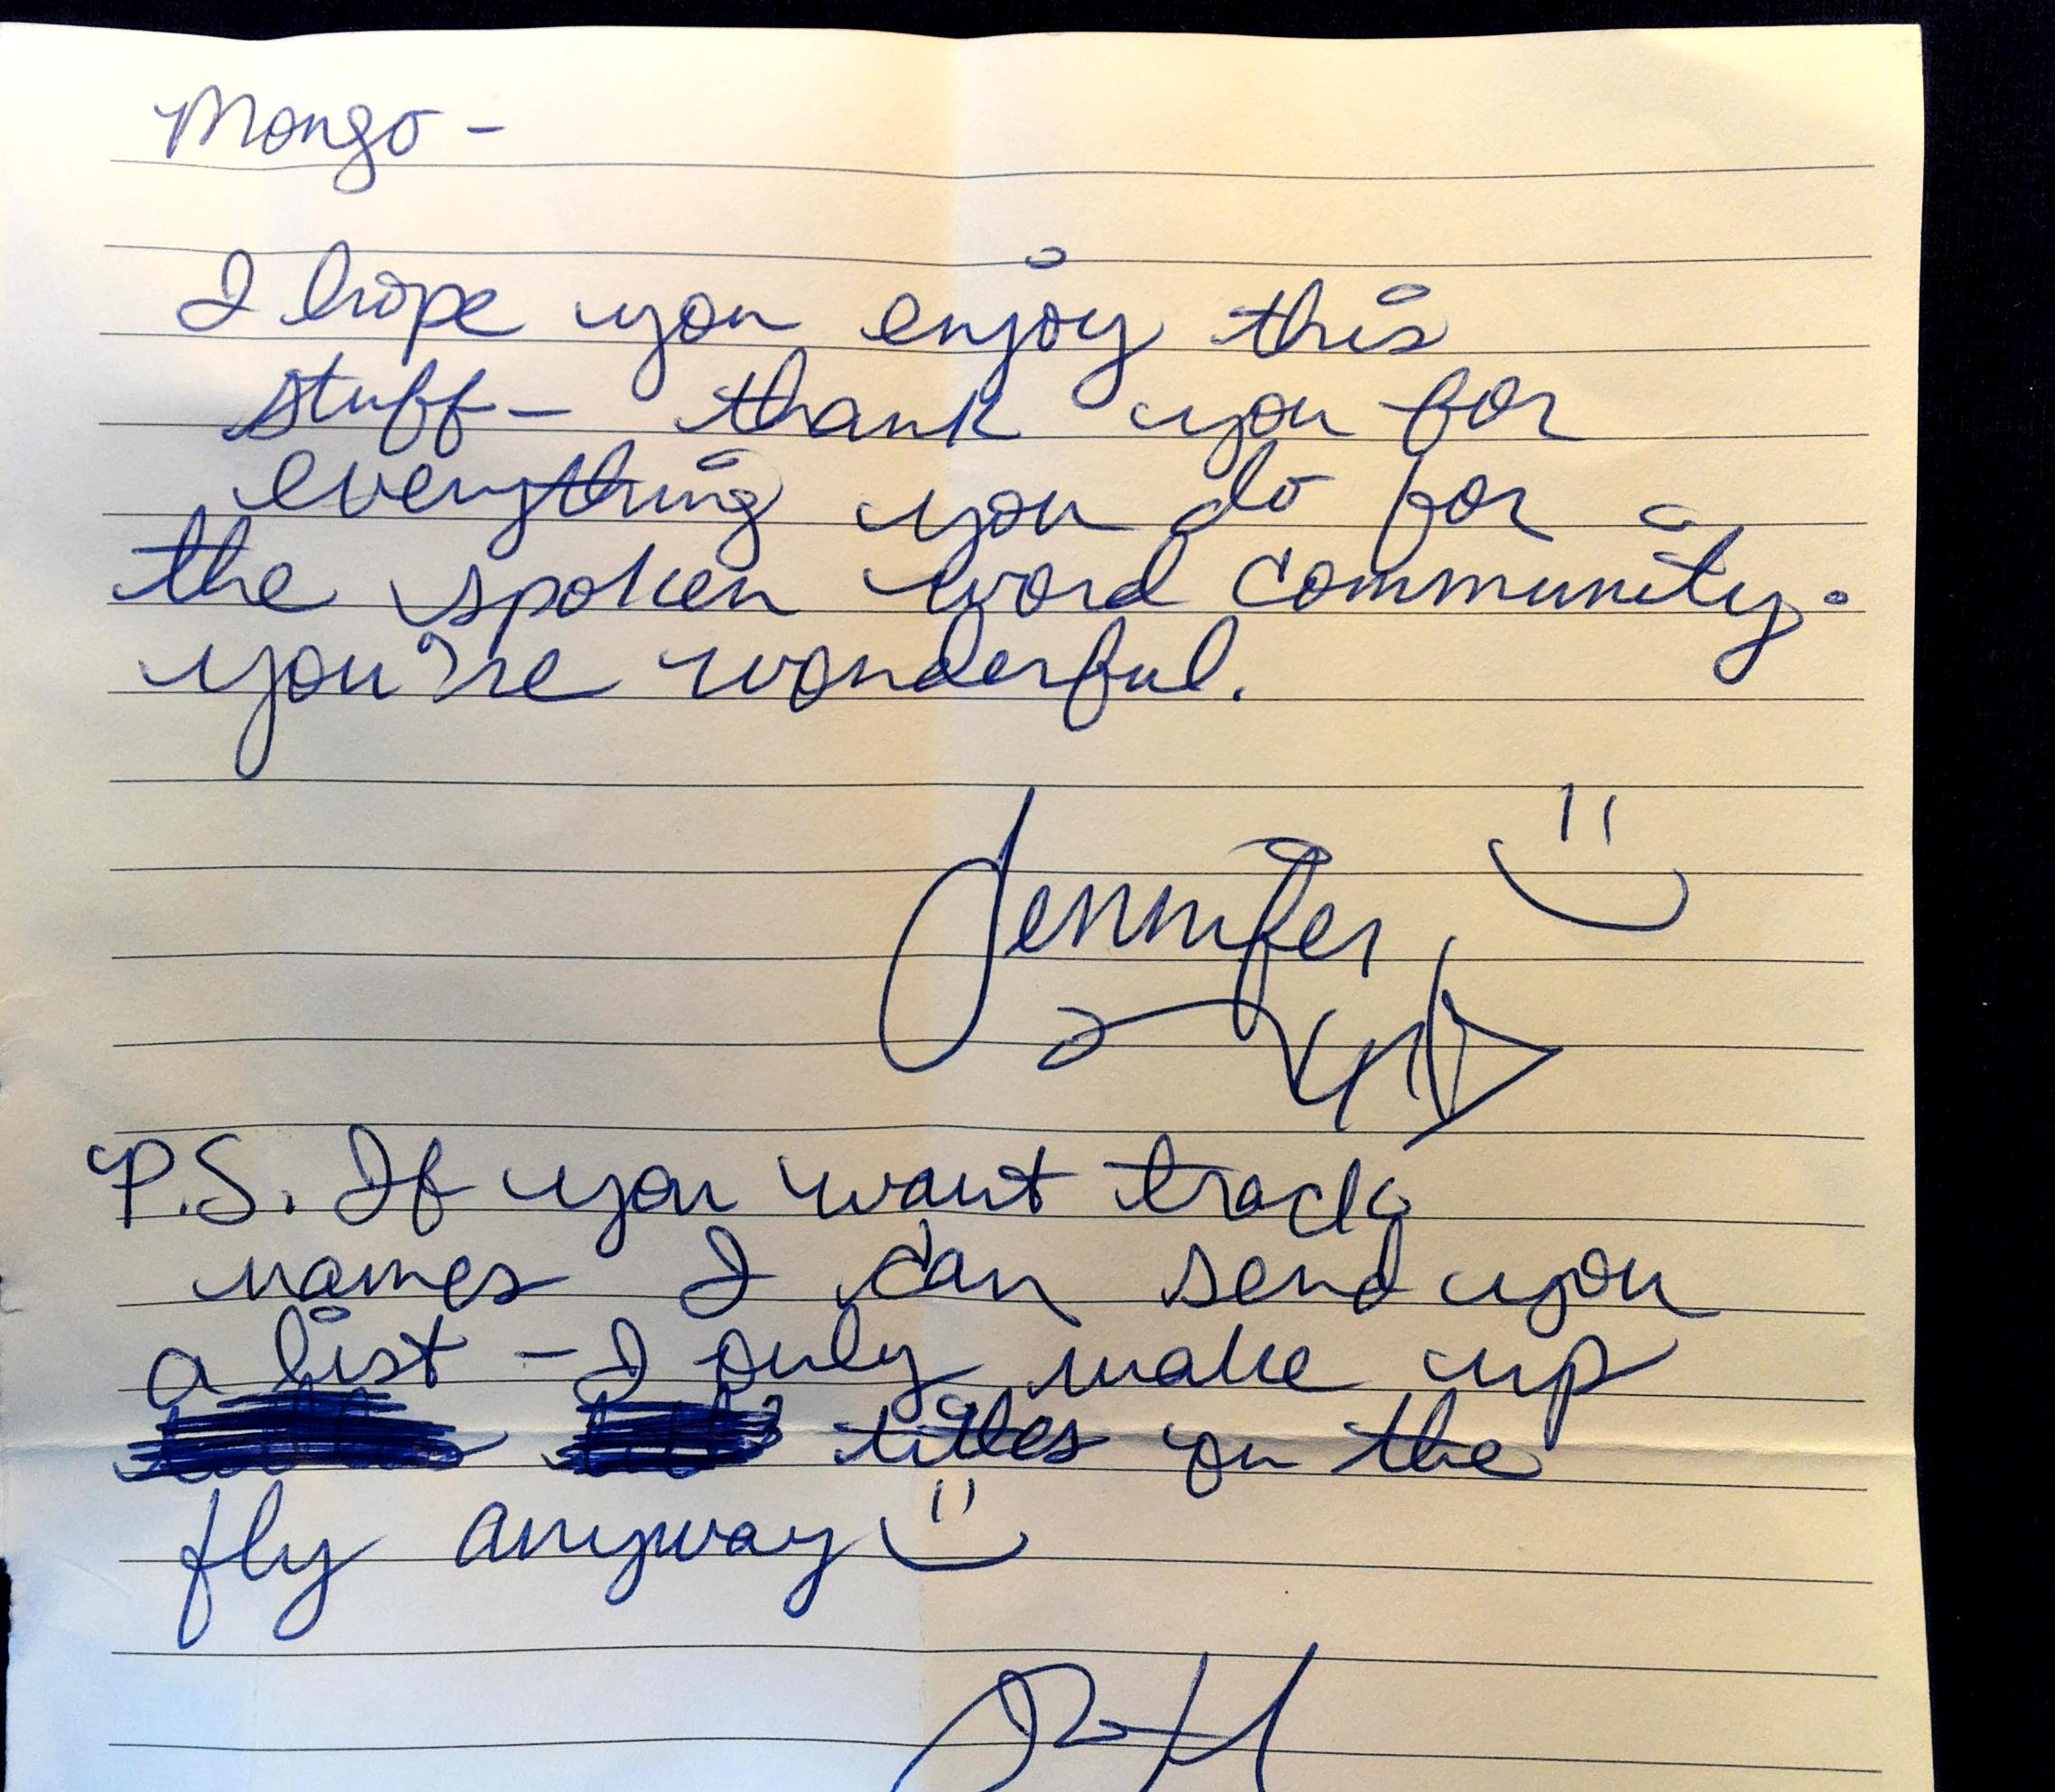 Mongo -
I hope you enjoy this
stuff - thank you for
everything you do for
the spoken word community.
you're wonderful.
Jennifer
P.S. If you want track
names I can send you
a list - I only make up
titles on the
fly anyway